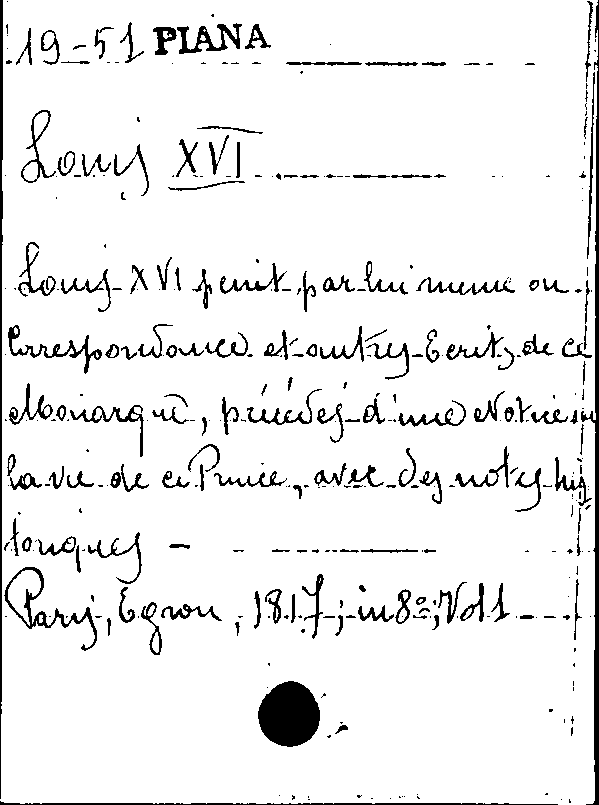 19-51 PIANA
Louis XVI
Louis XVI peint par lui meme ou
Correspondance et autres Ecrits de ce
Monarque, précédés d'une Notice sur
la vie de ce Prince, avec des notes his
toriques -
Paris, Egron, 1817; in 8º; Vol 1